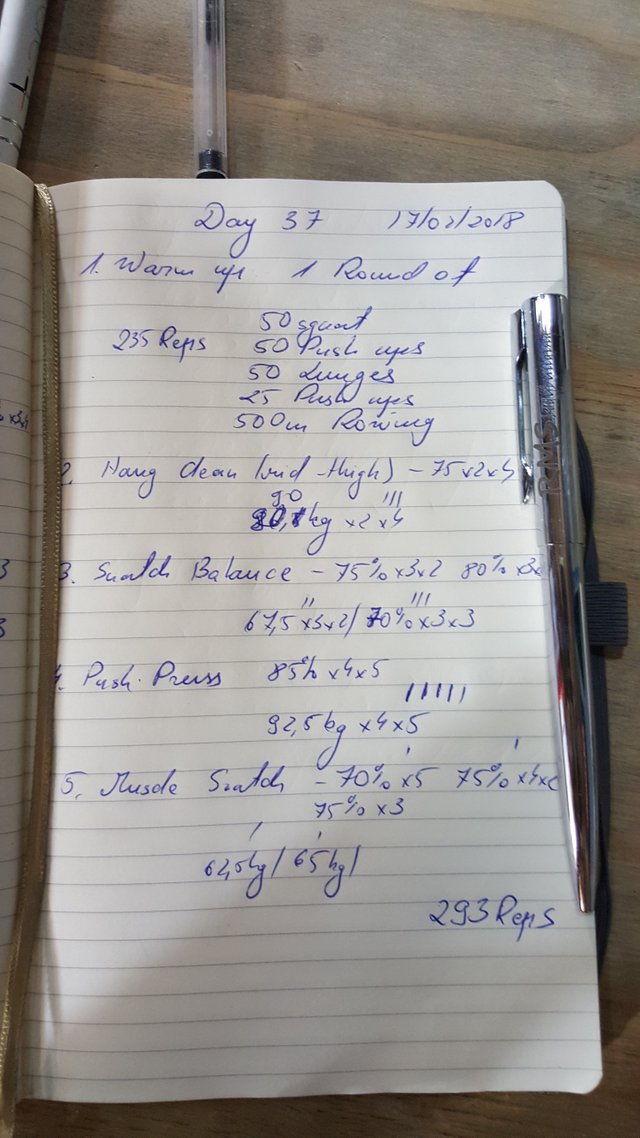 Day 37 17/02/2018
1. Warm ups 1 Round of
50 squat
235 Reps 50 Push ups
50 Lunges
25 Push ups
500m Rowing
2. Hang clean (mid-thigh) - 75x2x4
90
kg x2 x4
3. Snatch Balance - 75% x3x2 80% x3x
67,5 x3x2/ 70% x3x3
4. Push Press 85% x4x5
92,5kg x4x5
5. Muscle Snatch - 70% x5 75% x4x2
75% x3
62,5kg/ 65kg/
293 Reps
RMS